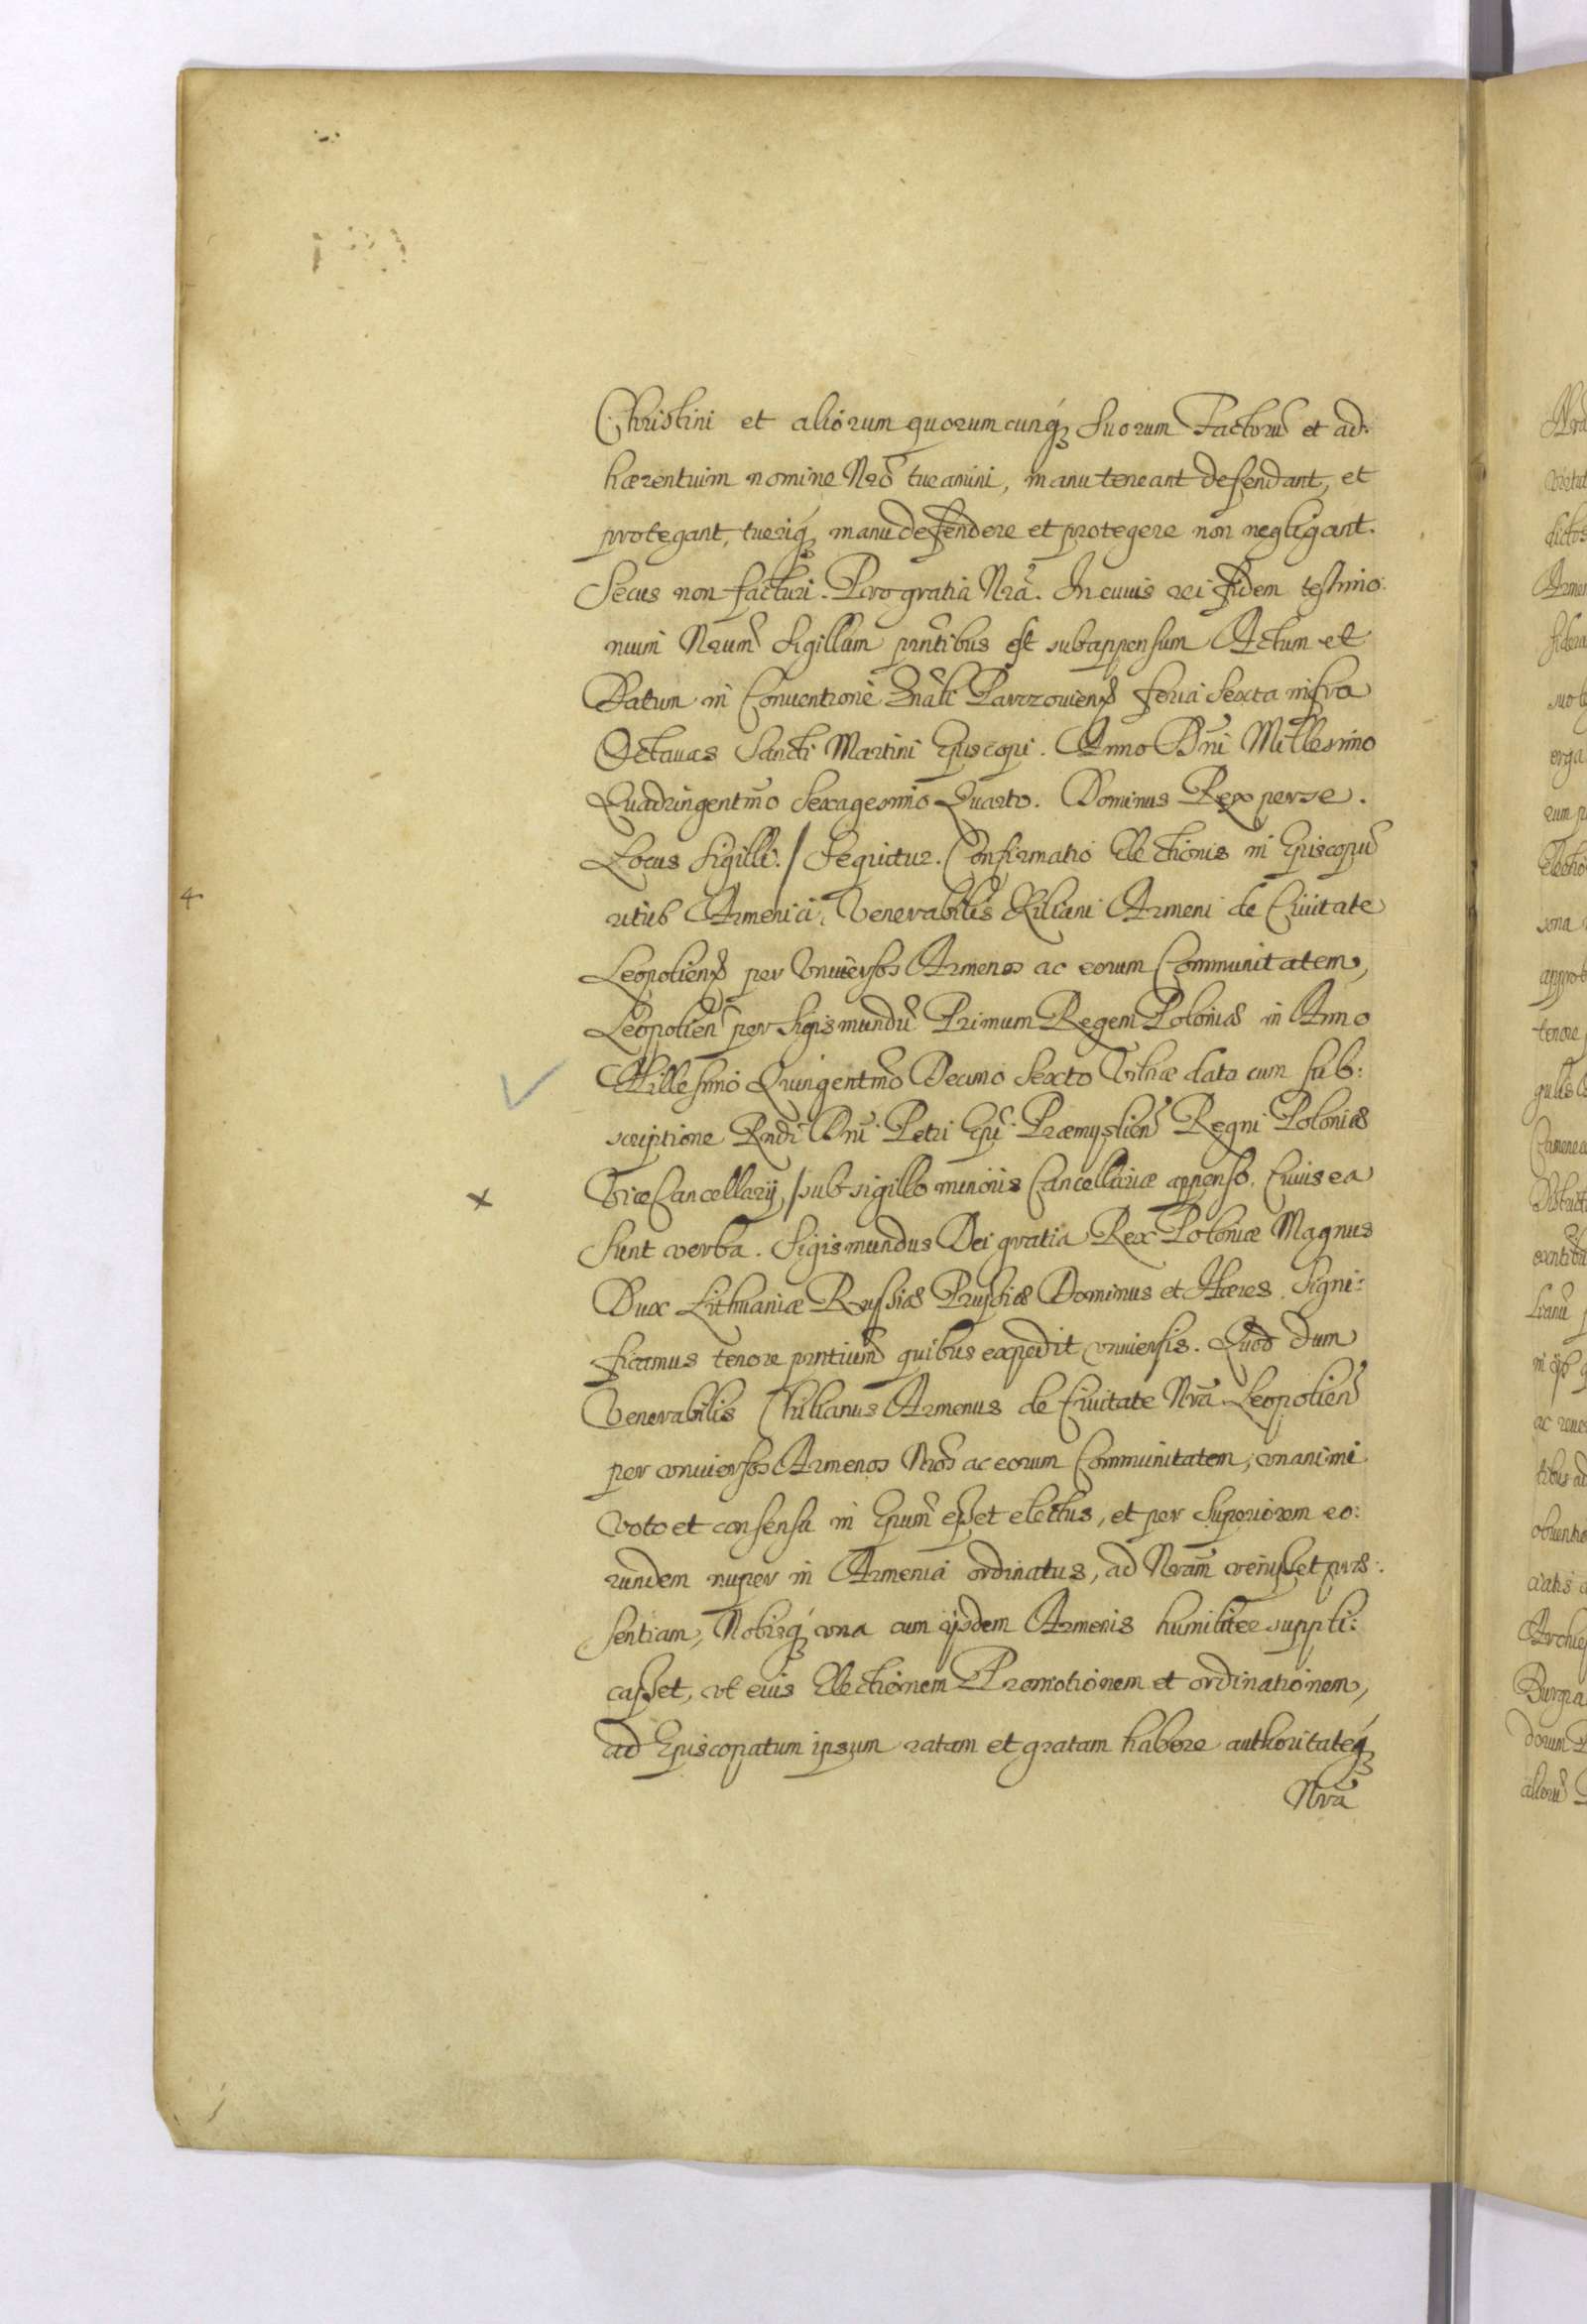 Christini et aliorum quorumcunq́ꝫ Suorum Factorũ et ad:
hærentuim nomine Nr̃o tueanini, manu teneant defendant, et
protegant, tueriq́ꝫ manu defendere et protegere non negligant.
Secus non facturi. Pro gratia Nr̃a. In cuius rei fidem testimo:
nium Nr̃um Sigillum pr̃ntibus est subappensum Actum et
Datum in Conuentione Gn̄ali Parczouien̄ feria Sexta infra
Octauas Sancti Martini Episcopi. Anno Dn̄i Millesimo
Quadringentm̃o Sexagesimo Quarto. Dominus Rex per se.
Locus Sigilli. / Sequitur. Confirmatio Electionis in Episcopũ
ritus Armenici, Venerabilis Kiliani Armeni de Ciuitate
Leopolien̄ per Vniuersos Armenos ac eorum Communitatem,
Leopolien̄ per Sigismundũ Primum Regem Poloniæ in Anno
Millesimo Quingentm̃o Decimo Sexto Vilnæ data cum sub:
scriptione Rn̄di Dn̄i Petri Ep̃i Præmyslien̄ Regni Poloniæ
ViceCancellarij, / sub sigillo minoris Cancellariæ appenso. Cuius ea
Sunt verba. Sigismundus Dei gratia Rex Poloniæ Magnus
Dux Lithuaniæ Russiæ Prussiæ Dominus et Hæres. Signi:
ficamus tenore pr̃ntium quibus expedit vniuersis. Quod dum
Venerabilis Chilianus Armenus de Ciuitate Nr̃a Leopolien̄
per vniuersos Armenos Nr̃os ac eorum Communitatem, vnanimi
voto et consensu in Ep̃um esset electus, et per Superiorem eo:
rundem nuper in Armenia ordinatus, ad Nr̃am venisset præ:
sentiam, Nobisq́ꝫ vna cum ijsdem Armenis humiliter suppli:
casset, vt eius Electionem Promotionem et ordinationem,
ad Episcopatum ipsum ratam et gratam habere authoritateq́ꝫ
Nr̃a
4